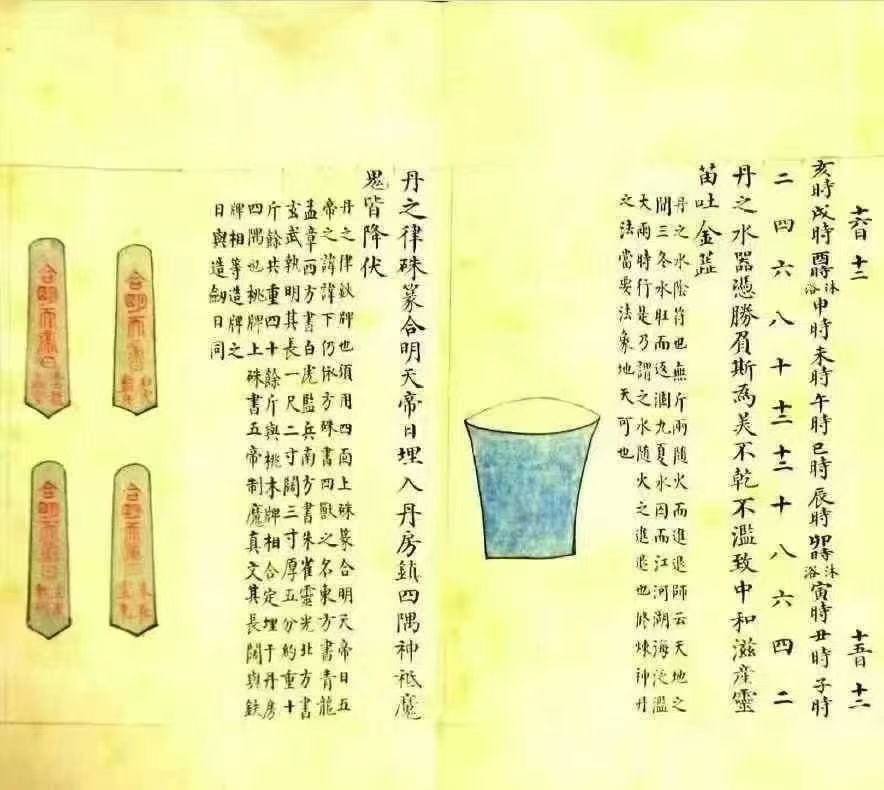 十六日 十二 十五日 十二
亥時戌時酉時沐浴申時未時午時巳時辰時卯時沐浴寅時丑時子時
二四六八十十二十二十八六四二
丹之水器憑勝負斯為美不乾不濫致中和滋產靈
苗吐金蕋
丹之水陰符也無斤兩隨火而進退師云天地之
間三冬水旺而逐涸九夏水囚而江河湖海泛濫
大雨時行是乃謂之水隨火之進退也修煉神丹
之法當要法象地天可也
丹之律硃篆合明天帝日埋入丹房鎮四隅神祇魔
鬼皆降伏
丹之律鉄牌也須用四面上硃篆合明天帝日五
帝之諱諱下仍依方硃書四獸之名東方書青龍
孟章西方書白虎監兵南方書朱雀靈光北方書
玄武執明其長一尺二寸闊三寸厚五分約重十
斤餘共重四十餘斤與桃木牌相合定埋于丹房
四隅也桃牌上硃書五帝制魔真文其長闊與鉄
牌相等造牌之
日與造劔日同
合明天帝日
合明天帝日
合明天帝日
合明天帝日